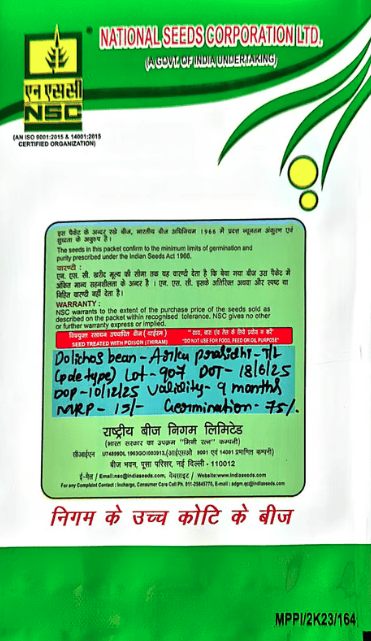 NATIONAL SEEDS CORPORATION LTD.
(A GOVT. OF INDIA UNDERTAKING)
एन एस सी
NSC
(AN ISO 9001:2015 & 14001:2015
CERTIFIED ORGANIZATION)
इस पैकेट के अन्दर रखे बीज, भारतीय बीज अधिनियम 1966 में प्रदत्त न्यूनतम अंकुरण एवं
शुद्धता के अनुरूप है।
The seeds in this packet confirm to the minimum limits of germination and
purity prescribed under the Indian Seeds Act 1966.
वारण्टी :
एन. एस. सी. खरीद मूल्य की सीमा तक यह वारण्टी देता है कि बेचा गया बीज उस पैकेट में
अंकित मान्य सहनशीलता के अन्दर है। एन. एस. सी. इसके अतिरिक्त अथवा और स्पष्ट या
निहित वारण्टी नहीं देता है।
WARRANTY :
NSC warrants to the extent of the purchase price of the seeds sold as
described on the packet within recognised tolerance. NSC gives no other
or further warranty express or implied.
विषयुक्त रसायन उपचारित बीज (थाईरम)
SEED TREATED WITH POISON (THIRAM)
" खाद्य, चारा एवं तेल के लिये प्रयोग न करें"
"DO NOT USE FOR FOOD, FEED OR OIL PURPOSE"
Dolichos bean - Arka prasidhi - T/L
(pole type) Lot - 907 DOT - 18/6/25
DOP - 10/12/25 Validity - 9 months
MRP - 15/- Germination - 75%
राष्ट्रीय बीज निगम लिमिटेड
(भारत सरकार का उपक्रम "मिनी रत्न" कम्पनी)
सीआईएन (आईएसओ 9001 एवं 14001 प्रमाणित कम्पनी)
बीज भवन, पूसा परिसर, नई दिल्ली - 110012
ई-मेल / Email:nsc@indiaseeds.com, वेबसाइट / Website:www.indiaseeds.com
For any Complaint Contact : Incharge, Consumer Care Cell Ph. 011-25843775, E-mail : adgm.qc@indiaseeds.com
निगम के उच्च कोटि के बीज
MPPI/2K23/164